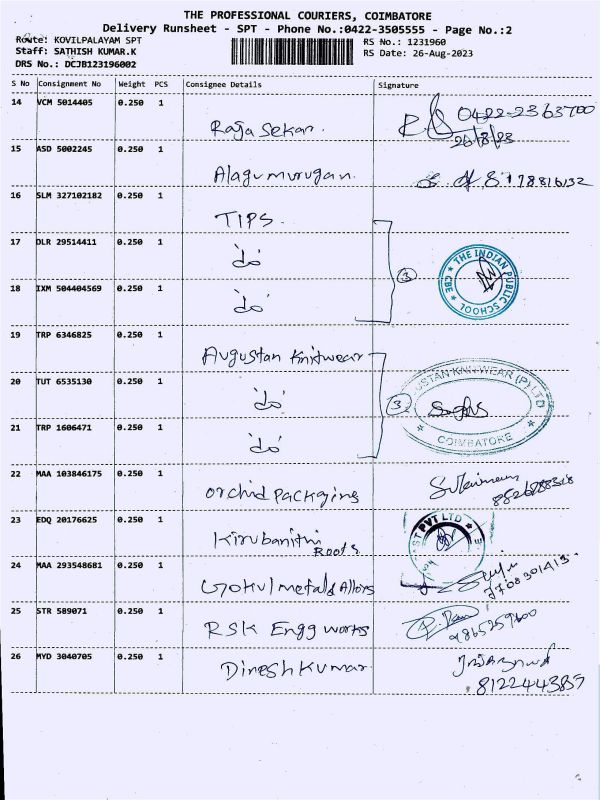 THE PROFESSIONAL COURIERS, COIMBATORE
Delivery Runsheet - SPT - Phone No.:0422-3505555 - Page No.:2
Route: KOVILPALAYAM SPT
Staff: SATHISH KUMAR.K
DRS No.: DCJB123196002
RS No.: 1231960
RS Date: 26-Aug-2023
S No Consignment No Weight PCS Consignee Details Signature
14 VCM 5014405 0.250 1 Raja Sekar. 0422-2363700
26/8/23
15 ASD 5002245 0.250 1 Alagumurugan.
16 SLM 327102182 0.250 1 TIPS.
17 DLR 29514411 0.250 1 "do"
THE INDIAN PUBLIC SCHOOL ★ CBE ★
18 IXM 504404569 0.250 1 "do" 3
19 TRP 6346825 0.250 1 Augustan Knitwear
20 TUT 6535130 0.250 1 "do" 3
USTAN KNITWEAR (P) LTD
COIMBATORE
21 TRP 1606471 0.250 1 "do"
22 MAA 103846175 0.250 1 Orchid Packgins
23 EDQ 20176625 0.250 1 Kirubanithi
Roots
PVT LTD
24 MAA 293548681 0.250 1 Gokul metals Alloys
25 STR 589071 0.250 1 RSK Engg works
26 MYD 3040705 0.250 1 Dinesh Kumar
8122444387